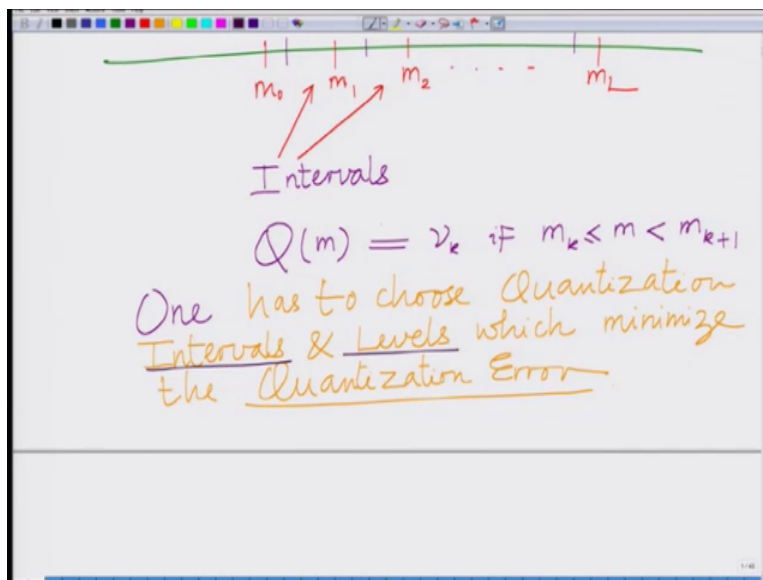 m₀ m₁ m₂ . . . . - m_L
Intervals
Q(m) = ν_k if m_k ≤ m < m_{k+1}
One has to choose Quantization
Intervals & Levels which minimize
the Quantization Error